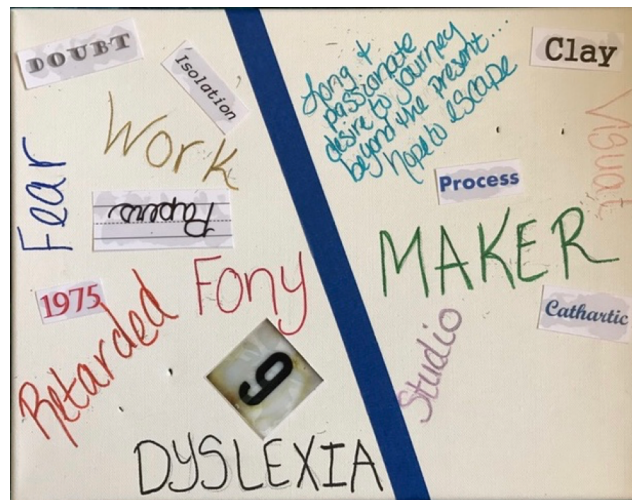 DOUBT
Isolation
Work
Fear
Papers
1975
Fony
Retarded
9
DYSLEXIA
Long +
passionate
desire to journey
beyond the present...
hope to escape
Clay
Visual
Process
MAKER
Cathartic
Studio